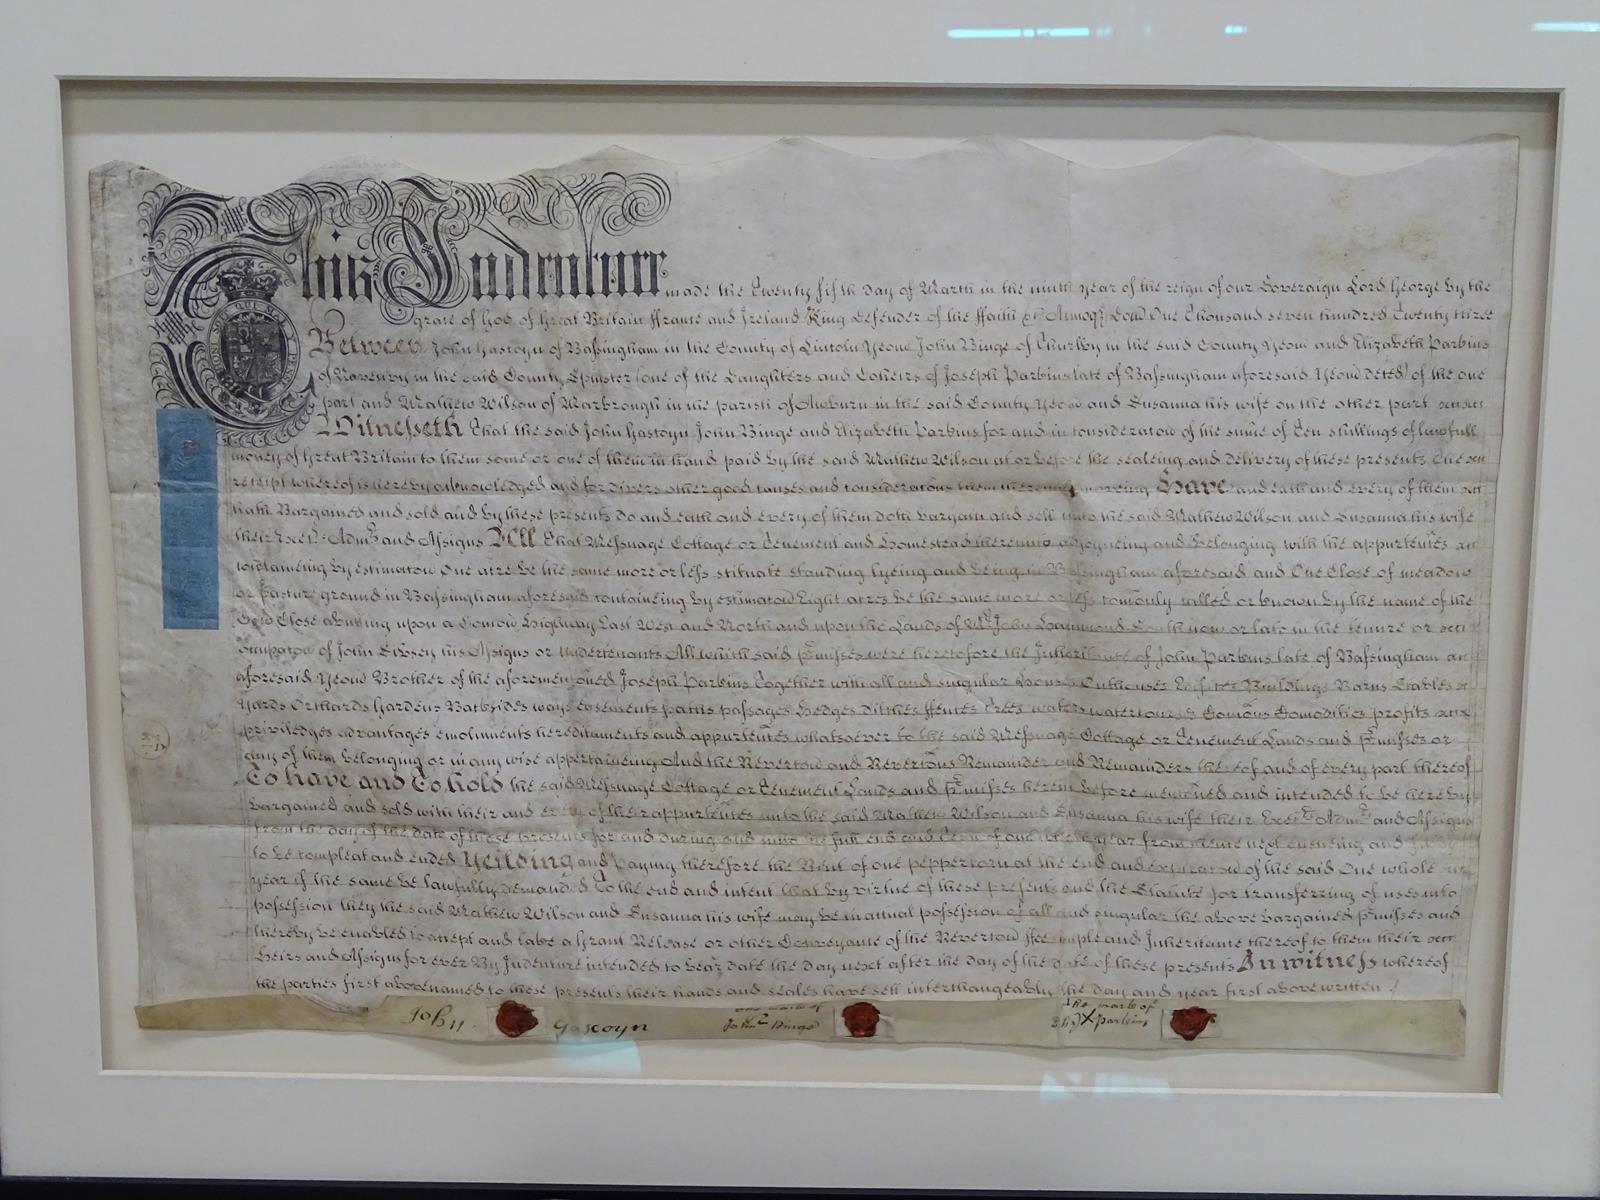 This Indenture made the Twenty fifth day of March in the ninth year of the reign of our Sovereign Lord George by the
grace of God of Great Britain ffrance and Ireland King Defender of the ffaith &c Annoq Dom One Thousand seven hundred Twenty three
Between John Gascoyn of Bassingham in the County of Lincoln Yeom John Binge of Thurlby in the said County Yeom and Elizabeth Parkins
of Navenby in the said County Spinster (one of the Daughters and Coheirs of Joseph Parkins late of Bassingham aforesaid Yeom deced) of the one
part and Mathew Wilson of Marbrough in the parish of Auburn in the said County Yeom and Susanna his wife on the other part
Witnesseth That the said John Gascoyn John Binge and Elizabeth Parkins for and in consideracon of the sume of Ten shillings of lawfull
money of Great Britain to them some or one of them in hand paid by the said Mathew Wilson at or before the sealeing and delivery of these presents The
receipt whereof is hereby acknowledged and for divers other good causes and consideracons them thereunto moveing Have and each and every of them
hath Bargained and sold and by these presents do and each and every of them doth bargain and sell unto the said Mathew Wilson and Susanna his wife
their Exers Admrs and Assigns All That Messuage Cottage or Tenement and Homestead thereunto adjoyneing and belonging with the appurtences
containeing by estimacon One acre be the same more or less scituate standing lyeing and being in Bassingham aforesaid and One Close of meadow
or Pasture ground in Bassingham aforesaid containeing by estimacon Eight acres be the same more or less comonly called or known by the name of the
Close abutting upon a Comon Highway East West and North and upon the Lands of Mr John Hammond South now or late in the tenure or
occupacon of John his Assigns or undertenants All which said premisses were heretofore the Inheritance of John Parkins late of Bassingham
aforesaid Yeom Brother of the aforemenconed Joseph Parkins Together with all and singular Houses Outhouses Edifices Buildings Barns Stables
Yards Orchards Gardens Backsides ways easements paths passages Hedges ditches ffences Trees waters watercourses Comons Comodities profits
priviledges advantages emoluments hereditaments and appurtences whatsoever to the said Messuage Cottage or Tenement Lands and premisses or
any of them belonging or in any wise appertaineing And the Revercon and Revercons Remainder and Remainders thereof and of every part thereof
To have and To hold the said Messuage Cottage or Tenement Lands and premisses herein before menconed and intended to be hereby
bargained and sold with their and every of their appurtences unto the said Mathew Wilson and Susanna his wife their Exers Admrs and Assigns
from the day of the date of these presents for and during and unto the full end and Term of one whole year from thence next ensueing and
to be compleat and ended Yeilding and Paying therefore the Rent of one peppercorn at the end and expiracon of the said One whole
year if the same be lawfully demanded To the end and intent that by virtue of these presents and the Statute for transferring of uses into
possession they the said Mathew Wilson and Susanna his wife may be in actual possession of all and singular the above bargained premisses and
thereby be enabled to accept and take a Grant Release or other Conveyance of the Revercon ffee simple and Inheritance thereof to them their
Heirs and Assigns for ever By Indenture intended to bear date the day next after the day of the date of these presents In witness whereof
the parties first abovenamed to these presents their hands and seales have sett interchangeably the day and year first above written
John Gascoyn
mark of
John Binge
The mark of
Eliz X Parkins